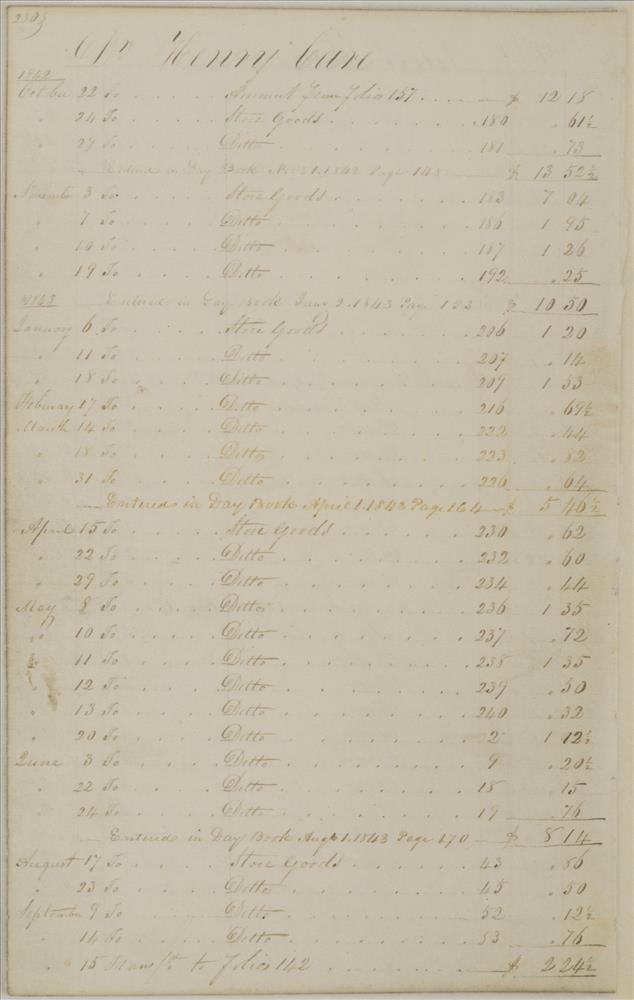 Dr Henny Care
1842
October 22 To . . . . . Amount From Folio 157 . . . . $ 12 18
" 24 To . . . . . Store Goods . . . . . . 180 . 61½
" 29 To . . . . . Ditto . . . . . . . 181 . 73
Entered in Day Book Nov 1. 1842 Page 143 $ 13 52½
November 3 To . . . . . Store Goods . . . . . . 183 7 04
" 7 To . . . . . Ditto . . . . . . . 186 1 95
" 10 To . . . . . Ditto . . . . . . . 187 1 26
" 19 To . . . . . Ditto . . . . . . . 192 . 25
1843 Entered in Day Book Jany 2. 1843 Page 153 $ 10 50
January 6 To . . . . . Store Goods . . . . . . 206 1 20
" 11 To . . . . . Ditto . . . . . . . 207 . 14
" 18 To . . . . . Ditto . . . . . . . 209 1 53
February 17 To . . . . . Ditto . . . . . . . 216 . 69½
March 14 To . . . . . Ditto . . . . . . . 222 . 44
" 18 To . . . . . Ditto . . . . . . . 223 . 82
" 31 To . . . . . Ditto . . . . . . . 226 . 64
Entered in Day Book April 1. 1843 Page 164 $ 5 46½
April 15 To . . . . . Store Goods . . . . . . 230 . 62
" 22 To . . . . . Ditto . . . . . . . 232 . 60
" 29 To . . . . . Ditto . . . . . . . 234 . 44
May 8 To . . . . . Ditto . . . . . . . 236 1 35
" 10 To . . . . . Ditto . . . . . . . 237 . 72
" 11 To . . . . . Ditto . . . . . . . 238 1 35
" 12 To . . . . . Ditto . . . . . . . 239 . 50
" 13 To . . . . . Ditto . . . . . . . 240 . 32
" 20 To . . . . . Ditto . . . . . . . 2 1 12½
June 3 To . . . . . Ditto . . . . . . . 9 . 20½
" 22 To . . . . . Ditto . . . . . . . 18 . 15
" 24 To . . . . . Ditto . . . . . . . 19 . 76
Entered in Day Book Augt 1. 1843 Page 170 $ 8 14
August 17 To . . . . . Store Goods . . . . . . 43 . 86
" 23 To . . . . . Ditto . . . . . . . 45 . 50
September 9 To . . . . . Ditto . . . . . . . 52 . 12½
" 14 To . . . . . Ditto . . . . . . . 53 . 76
" 15 to Folio 142 . . . . . . . $ 2 24½